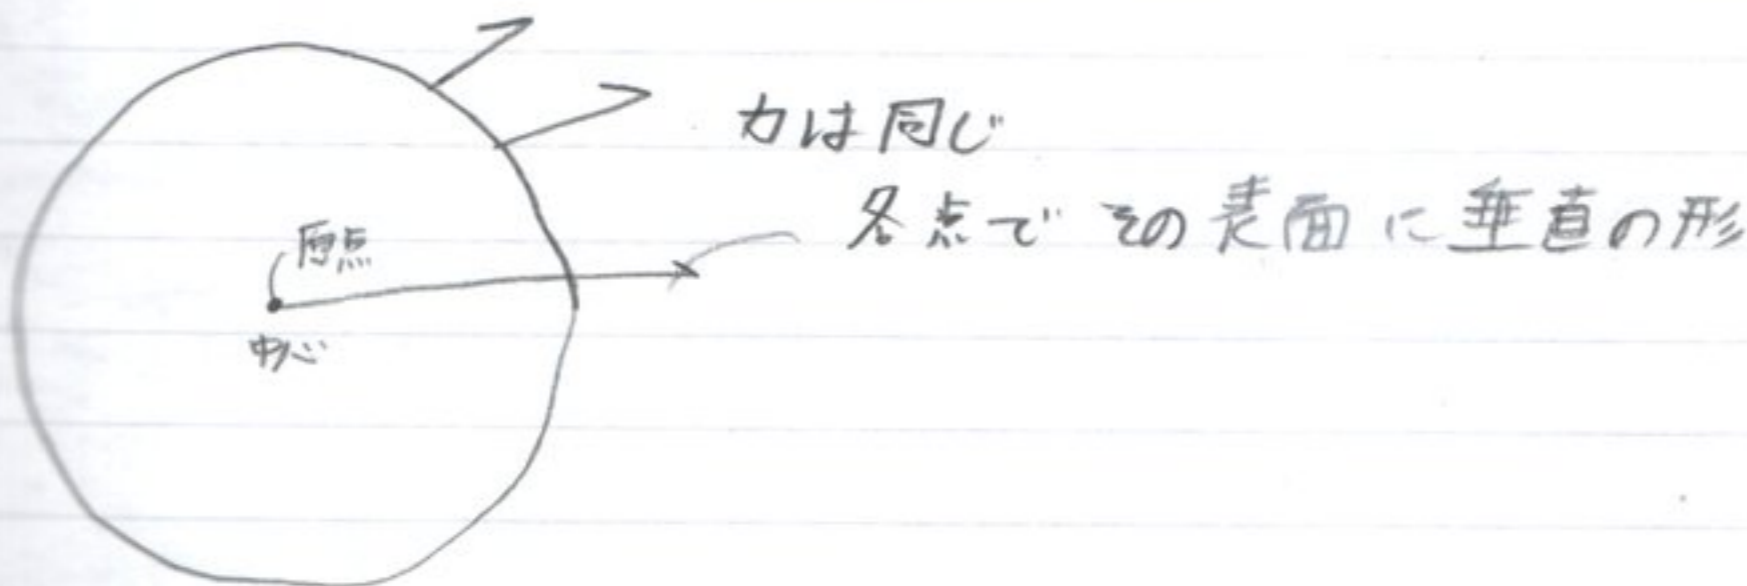 力は同じ
各点で その表面に垂直の形
原点
中心